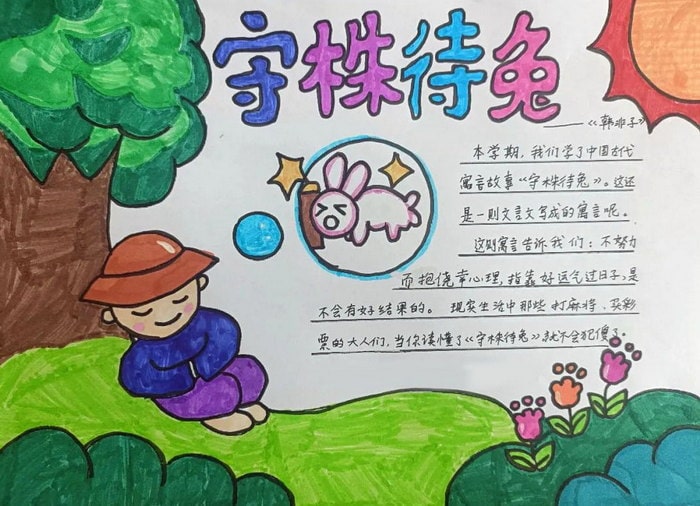 守株待兔
——《韩非子》
本学期，我们学了中国古代
寓言故事《守株待兔》。这还
是一则文言文写成的寓言呢。
这则寓言告诉我们：不努力
而抱侥幸心理，指靠好运气过日子，是
不会有好结果的。现实生活中那些打麻将、买彩
票的大人们，当你读懂了《守株待兔》就不会犯傻了。